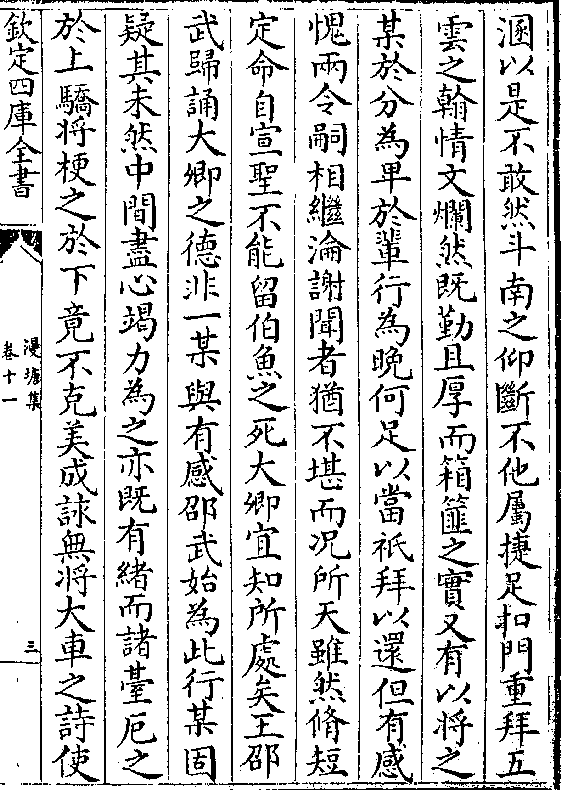 溷以是不敢然斗南之仰斷不他屬捷足扣門重拜五
雲之翰情文爛然既勤且厚而箱篚之實又有以將之
某於分為卑於輩行為晚何足以當祗拜以還但有感
愧兩令嗣相繼淪謝聞者猶不堪而况所天雖然脩短
定命自宣聖不能留伯魚之死大卿宜知所處矣王邵
武歸誦大卿之德非一某與有感邵武始為此行某固
疑其未然中間盡心竭力為之亦既有緒而諸臺厄之
於上驕将梗之於下竟不克美成詠無将大車之詩使
欽定四庫全書
漫塘集
卷十一
三